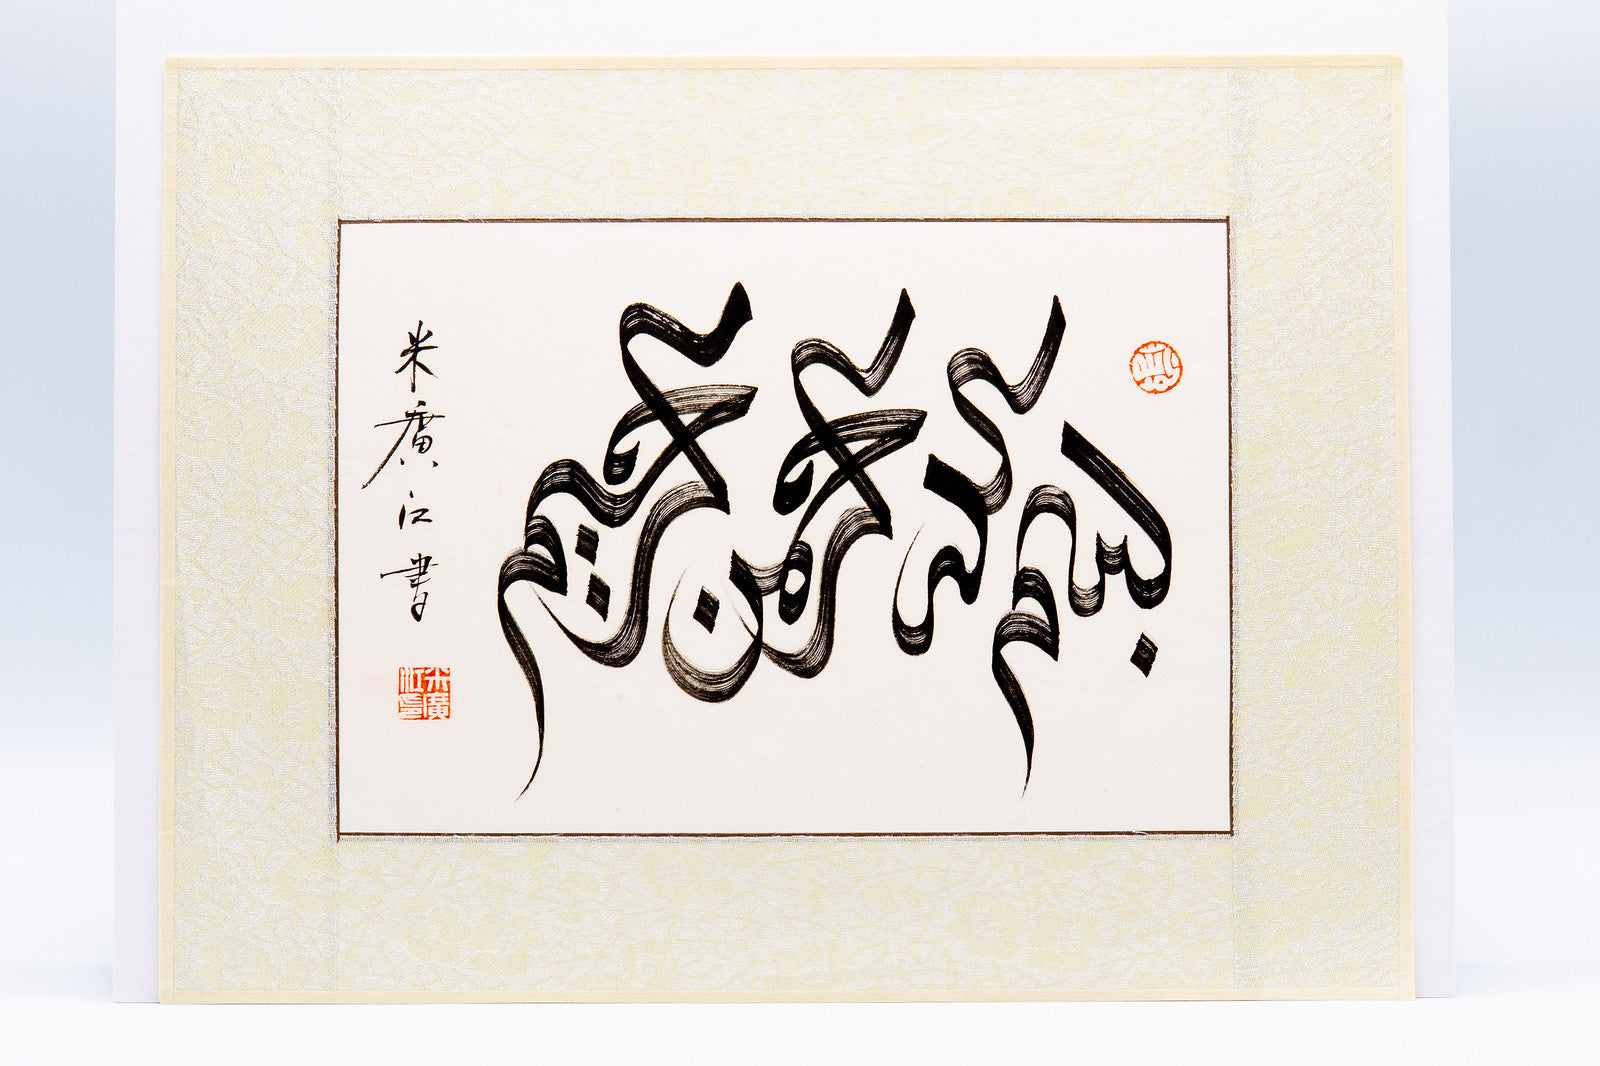 بسم الله الرحمن الرحيم
米廣江書
米廣江印